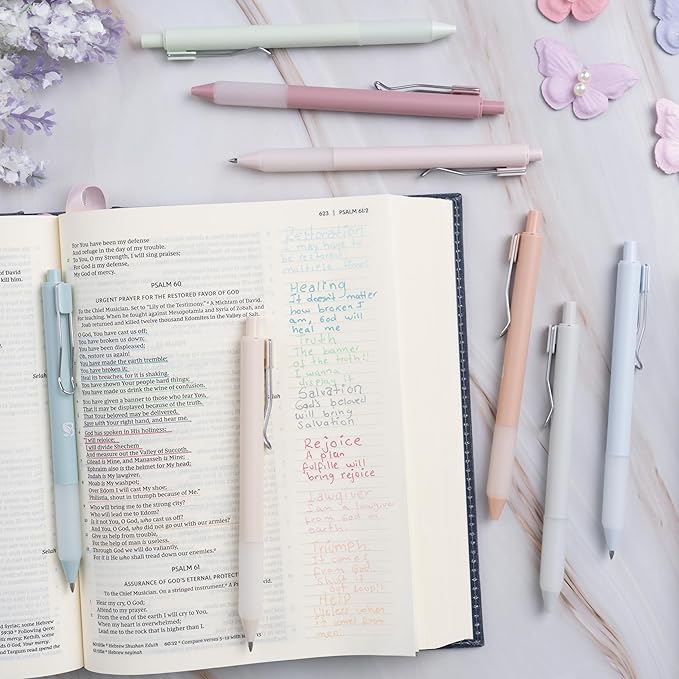 of David
kill him.
Selah
Selah
623 | PSALM 61:2
For You have been my defense
And refuge in the day of my trouble.
To You, O my Strength, I will sing praises;
For God is my defense,
My God of mercy.
PSALM 60
URGENT PRAYER FOR THE RESTORED FAVOR OF GOD
To the Chief Musician. Set to "Lily of the Testimony." A Michtam of David,
for teaching. When he fought against Mesopotamia and Syria of Zobah, and
Joab returned and killed twelve thousand Edomites in the Valley of Salt.
O God, You have cast us off;
You have broken us down;
You have been displeased;
Oh, restore us again!
You have made the earth tremble;
You have broken it;
Heal its breaches, for it is shaking.
You have shown Your people hard things;
You have made us drink the wine of confusion.
You have given a banner to those who fear You,
That it may be displayed because of the truth.
That Your beloved may be delivered,
Save with Your right hand, and hear me.
God has spoken in His holiness:
"I will rejoice;
I will divide Shechem
And measure out the Valley of Succoth.
Gilead is Mine, and Manasseh is Mine;
Ephraim also is the helmet for My head;
Judah is My lawgiver.
Moab is My washpot;
Over Edom I will cast My shoe;
Philistia, shout in triumph because of Me."
Who will bring me to the strong city?
Who will lead me to Edom?
Is it not You, O God, who cast us off?
And You, O God, who did not go out with our armies?
Give us help from trouble,
For the help of man is useless.
Through God we will do valiantly,
For it is He who shall tread down our enemies.
PSALM 61
ASSURANCE OF GOD'S ETERNAL PROTECT
To the Chief Musician. On a stringed instrument. A Psalm of
Hear my cry, O God;
Attend to my prayer.
From the end of the earth I will cry to You,
When my heart is overwhelmed;
Lead me to the rock that is higher than I.
Restoration
I may have to
be restored
multiple times
Healing
It doesn't matter
how broken I
am, God will
heal me
Truth
The banner
of the truth!!
I wanna
display it
Salvation
God's beloved
will bring
Salvation
Rejoice
A plan
fulfille will
bring rejoice
Lawgiver
I am a lawgiver
from God on
earth
Triumph
It comes
from God
shout it
out loud!!
Help
useless when
it comes from
men